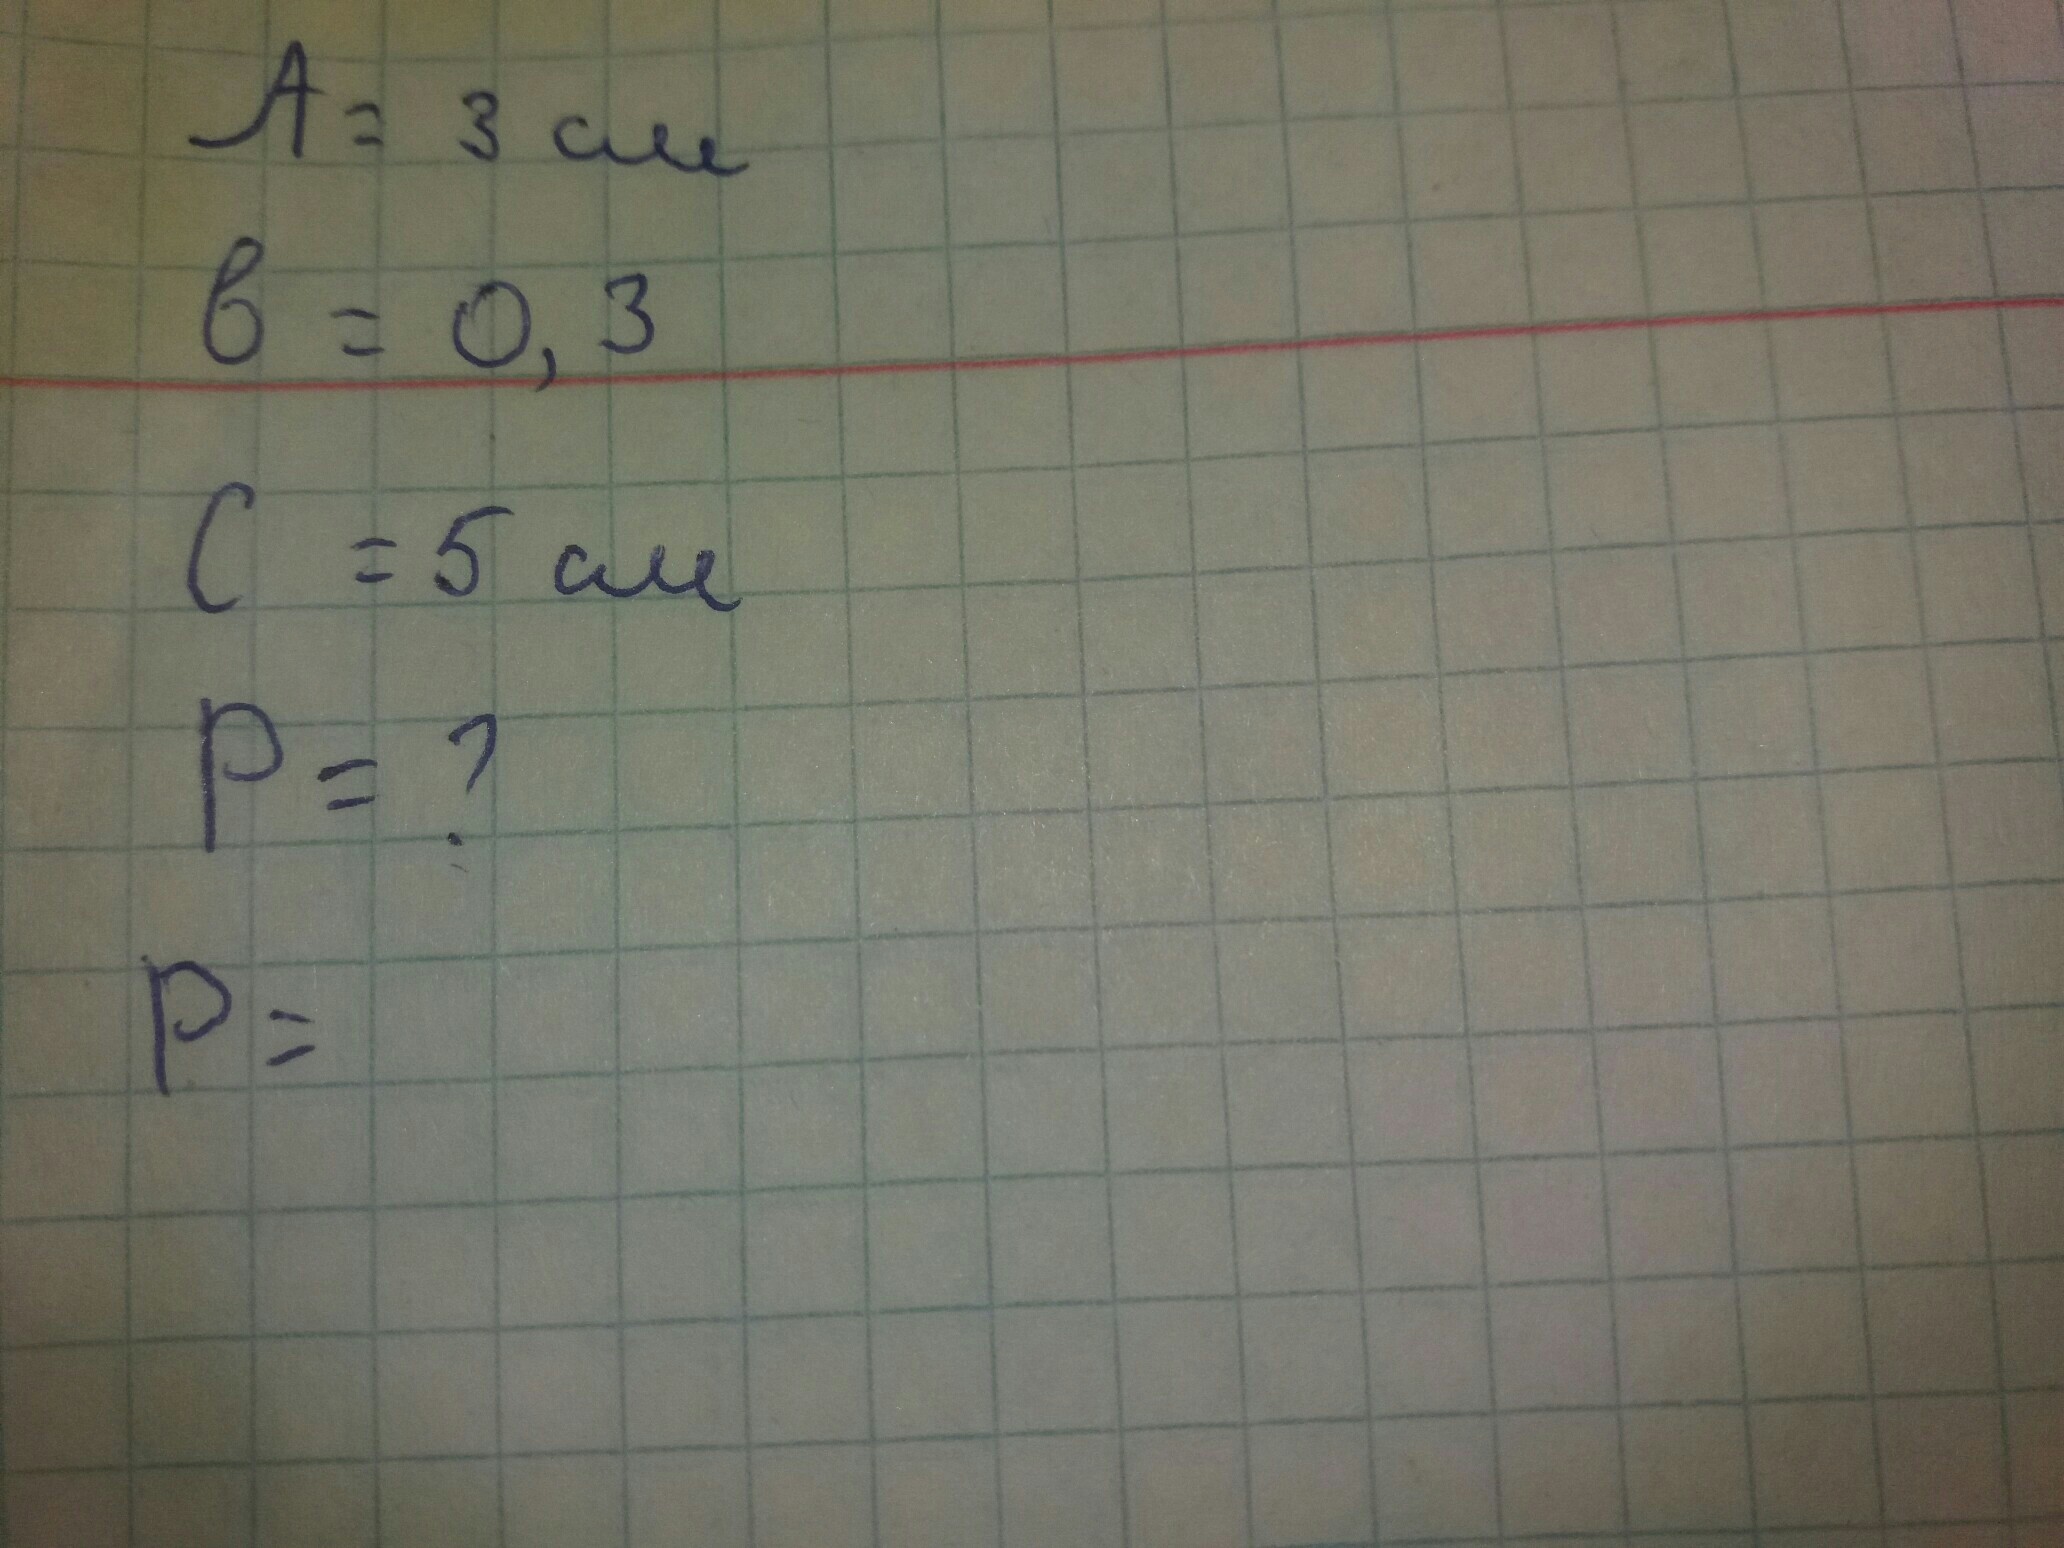 А = 3 см
в = 0,3
С = 5 см
Р = ?
Р =